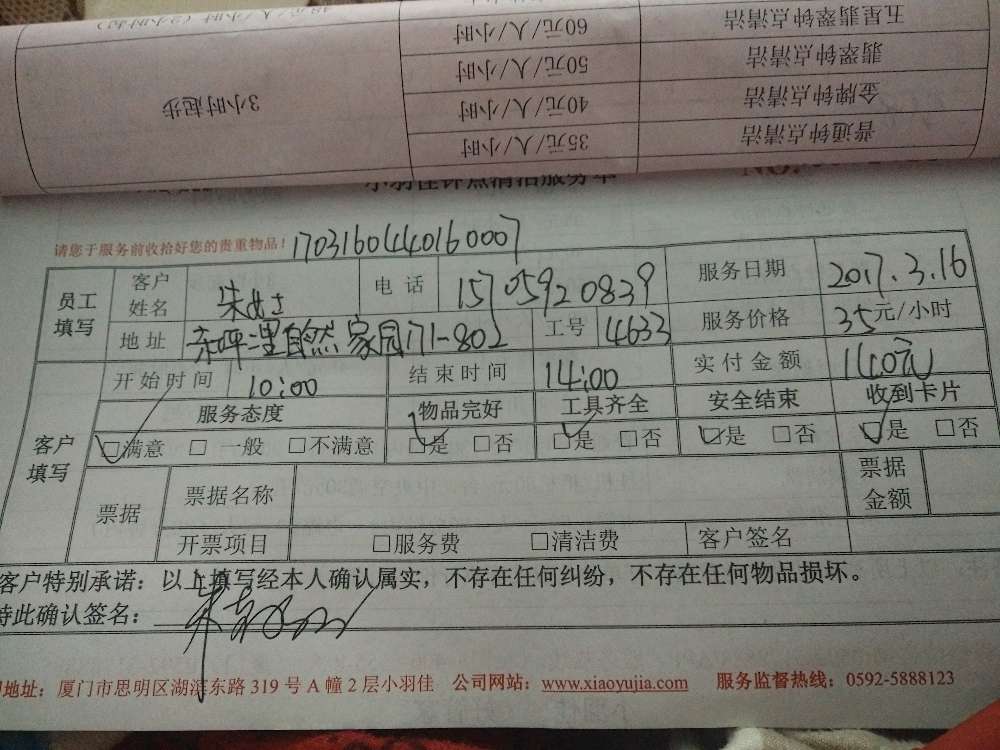 48元/人/小时（2小时起）
五星翡翠钟点清洁 60元/人/小时
翡翠钟点清洁 50元/人/小时
金牌钟点清洁 40元/人/小时 3小时起步
普通钟点清洁 35元/人/小时
小羽佳钟点清洁服务单 NO:
请您于服务前收拾好您的贵重物品! 1703160440160007
员工填写 客户姓名 朱女士 电话 15705920839 服务日期 2017.3.16
地址 东坪里自然家园71-802 工号 4633 服务价格 35元/小时
客户填写 开始时间 10:00 结束时间 14:00 实付金额 140元
服务态度 物品完好 工具齐全 安全结束 收到卡片
☑满意 □一般 □不满意 ☑是 □否 ☑是 □否 ☑是 □否 ☑是 □否
票据 票据名称 票据金额
开票项目 □服务费 □清洁费 客户签名
客户特别承诺：以上填写经本人确认属实，不存在任何纠纷，不存在任何物品损坏。
特此确认签名：
地址：厦门市思明区湖滨东路319号A幢2层小羽佳 公司网站：www.xiaoyujia.com 服务监督热线：0592-5888123